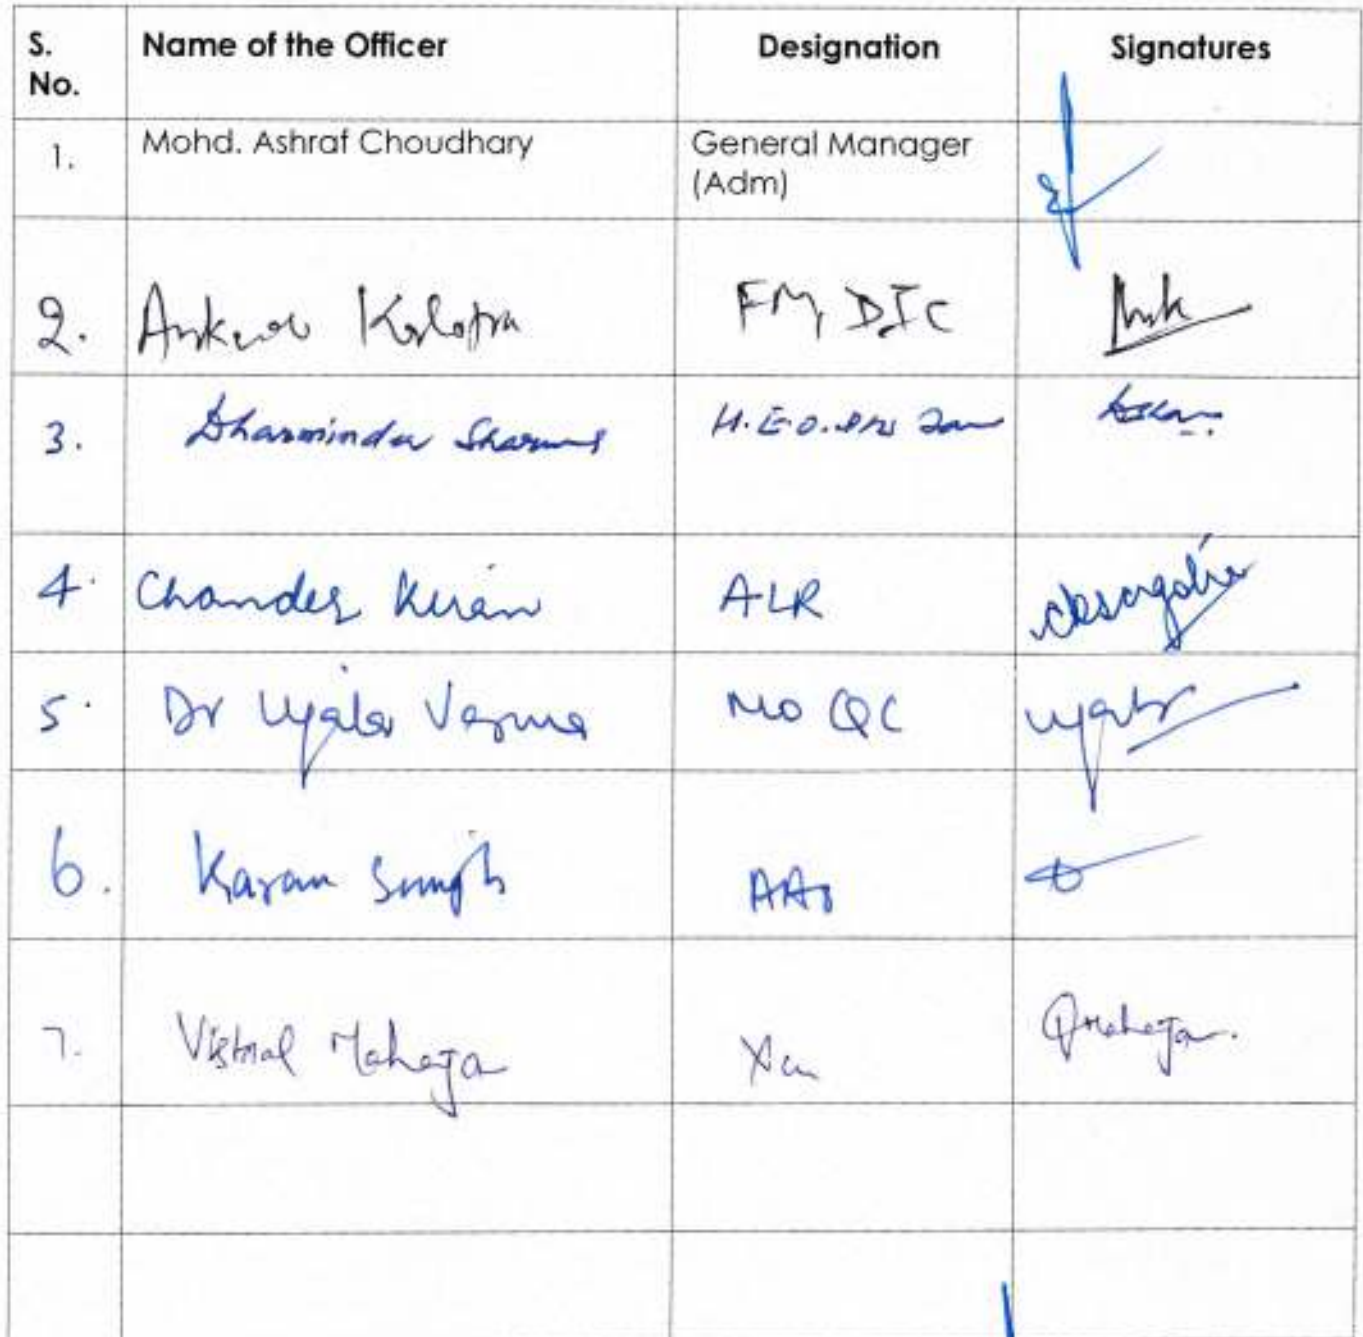 S. No. Name of the Officer Designation Signatures
1. Mohd. Ashraf Choudhary General Manager (Adm)
2. FM, DIC
3. Dharminder Sharma H.E.O.
4. Chander Kiran ALR
5. Dr Ujala Verma MO QC Ujala
6. Karan Singh AAO
7. Vishal Mahajan Xen